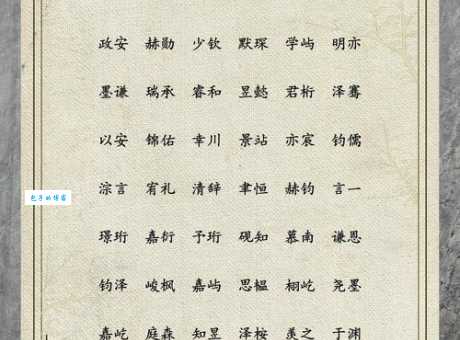 政安 赫勋 少钦 默琛 学屿 明亦
墨谦 瑞承 睿和 昱懿 君桁 泽骞
以安 锦佑 幸川 景站 亦宸 钧儒
淙言 宥礼 清辞 聿恒 赫钧 言一
璟珩 嘉衍 予珩 砚知 慕南 谦恩
钧泽 峻枫 嘉屿 思榅 栩屹 尧墨
嘉屹 庭森 知昱 泽桉 羡之 于渊